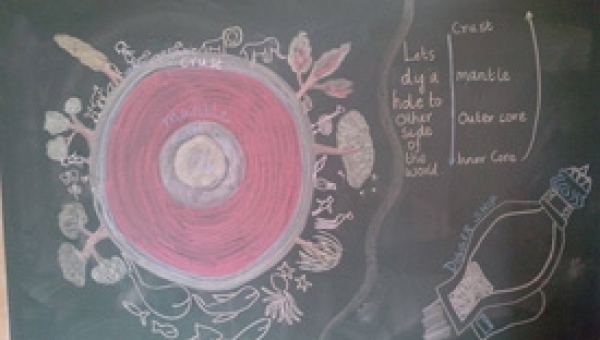 Crust
mantle
Lets
dig a
hole to
other
side
of
the
world
Crust
mantle
Outer core
Inner Core